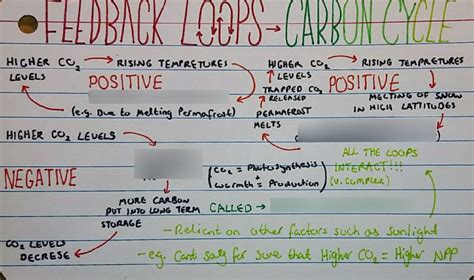 FEEDBACK LOOPS → CARBON CYCLE
HIGHER CO2 → RISING TEMPRETURES
LEVELS
POSITIVE
(e.g. Due to Melting Permafrost)
HIGHER CO2 → RISING TEMPRETURES
LEVELS
TRAPPED CO2
RELEASED
POSITIVE
MELTING OF SNOW
IN HIGH LATTITUDES
PERMAFROST
MELTS
HIGHER CO2 LEVELS
NEGATIVE
(CO2 = Photosynthesis
+
Warmth = Production)
ALL THE LOOPS
INTERACT!!!
(v. complex)
MORE CARBON
PUT INTO LONG TERM
STORAGE
CALLED →
CO2 LEVELS
DECRESE
- Reliant on other factors such as sunlight
- eg. Cant say for sure that Higher CO2 = Higher NPP